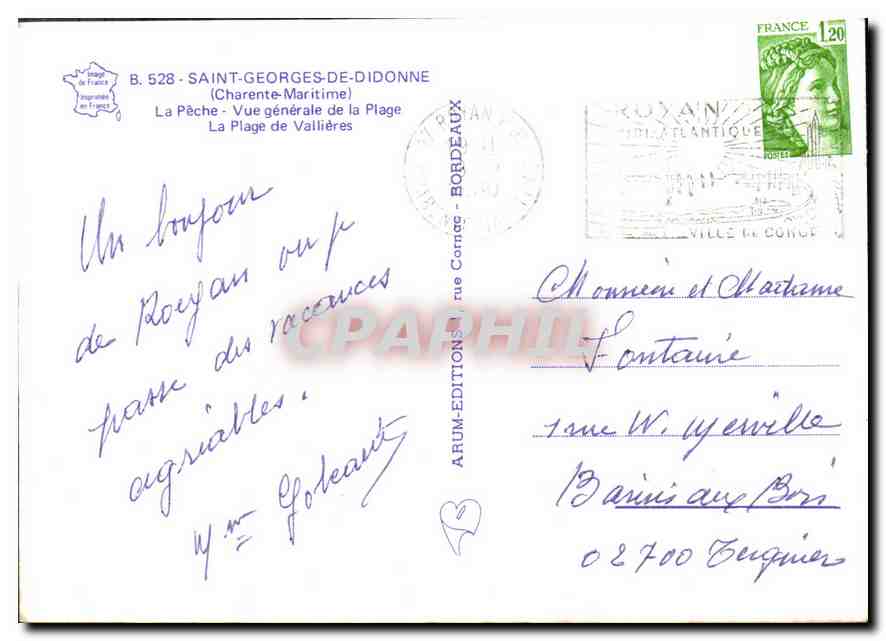 Image
de France
Imprimée
en France
B. 528 - SAINT-GEORGES-DE-DIDONNE
(Charente-Maritime)
La Pêche - Vue générale de la Plage
La Plage de Vallières
Un bonjour
de Royan ou je
passe des vacances
agréables.
Mme
ARUM-EDITIONS rue Cornac - BORDEAUX
FRANCE 1,20
POSTES
ROYAN
ATLANTIQUE
VILLE DE CONGRÈS
Monsieur et Madame
Fontaine
1 rue W. Merville
Barisis aux Bois
02700 Tergnier
CPAPHIL